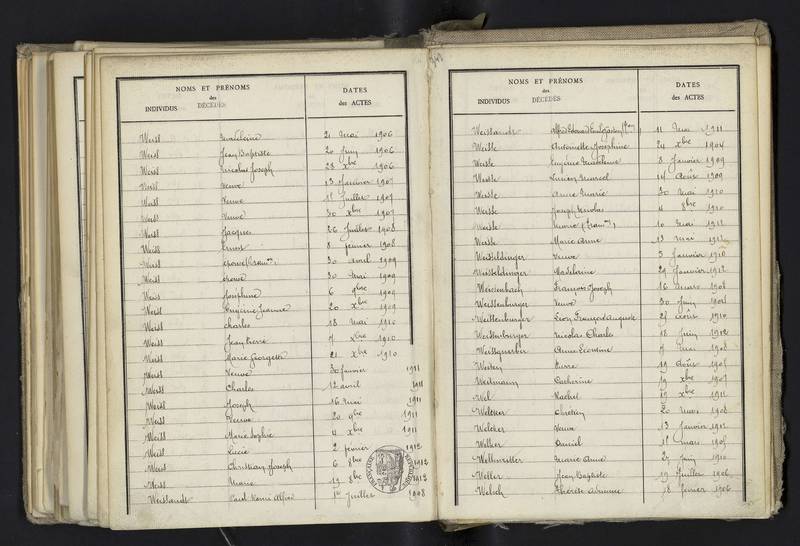 NOMS ET PRÉNOMS
des
INDIVIDUS DÉCÉDÉS
DATES
des ACTES
Weisl Madeleine 21 Mai 1906
Weisl Jean Baptiste 20 Juin 1906
Weisl Nicolas Joseph 28 Xbre 1906
Weisl Veuve 13 Janvier 1907
Weisl Veuve 11 Juillet 1907
Weisl Veuve 30 Xbre 1907
Weisl Jacques 26 Juillet 1908
Weisl Ernest 8 février 1908
Weisl épouse 30 avril 1909
Weisl épouse 30 Mai 1909
Weisl Joséphine 6 9bre 1909
Weisl Eugénie Jeanne 20 Xbre 1909
Weisl Charles 18 Mai 1910
Weisl Jean Pierre 7 Xbre 1910
Weisl Marie Georgette 21 Xbre 1910
Weisl Veuve 30 Janvier 1911
Weisl Charles 12 avril 1911
Weisl Joseph 16 Mai 1911
Weisl Veuve 20 9bre 1911
Weisl Marie Sophie 4 Xbre 1911
Weisl Lucie 2 février 1912
Weisl Christian Joseph 6 8bre 1912
Weisl Marie 19 8bre 1912
Weislandt Paul Henri 1er Juillet 1908
NOMS ET PRÉNOMS
des
INDIVIDUS DÉCÉDÉS
DATES
des ACTES
Weislandt 11 Mai 1911
Weisle Antoinette Joséphine 24 Xbre 1904
Weisle Eugénie Madeleine 8 Janvier 1909
Weisle Lucien Marcel 14 Août 1909
Weisle Anne Marie 30 Mai 1910
Weisle Joseph Nicolas 4 8bre 1910
Weisle Marie 10 Mai 1912
Weisle Marie Anne 13 Mai 1912
Veuve 3 Janvier 1910
Madeleine 29 Janvier 1912
Weissenbach François Joseph 16 Mars 1908
Weissenburger Veuve 30 Juin 1904
Weissenburger Léon François Auguste 25 Août 1910
Weissenburger Nicolas Charles 18 Juin 1912
Anne Léontine 7 Mai 1908
Pierre 19 Août 1905
Weitmann Catherine 19 Xbre 1907
Wel Rachel 19 Xbre 1911
Welcker Chrétien 20 Mars 1908
Welcker Veuve 13 Janvier 1912
Welker Daniel 11 Mars 1905
Marie Anne 27 Juin 1910
Weller Jean Baptiste 19 Juillet 1906
Welsch Thérèse 18 février 1906